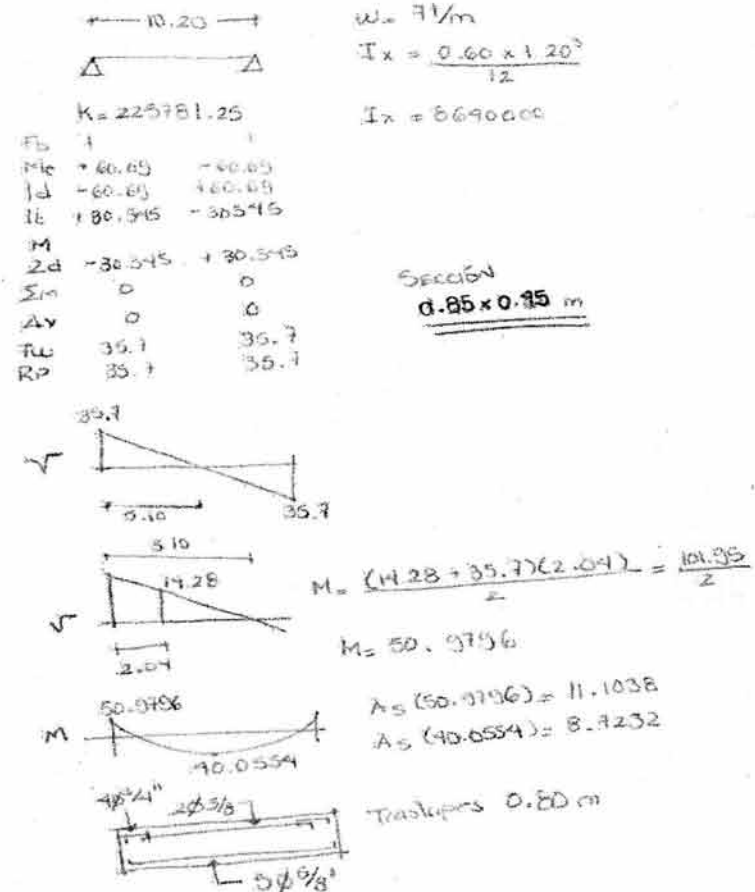 10.20
W= 7t/m
Ix = 0.60 x 1.20³
12
K= 225781.25
Ix = 8640000
Fb 1 1
Me +60.69 -60.69
1d -60.69 +60.69
1t +30.345 -30345
M
2d -30.345 +30.345
Σm 0 0
ΔV 0 0
Tw 35.7 35.7
RP 35.7 35.7
SECCIÓN
0.85 x 0.95 m
35.7
V
5.10
35.7
5.10
14.28
V
2.04
M= (14.28 + 35.7)(2.04) = 101.95
2 2
M= 50.9796
50.9796
As (50.9796)= 11.1038
M
As (40.0554)= 8.7232
40.0554
2Ø5/8
Traslapes 0.80 m
5Ø5/8"